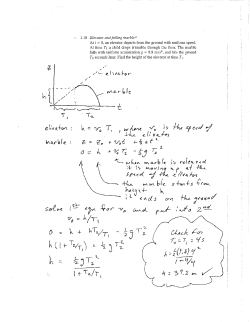 1.10 Elevator and falling marble*
At t = 0, an elevator departs from the ground with uniform speed.
At time T₁ a child drops a marble through the floor. The marble
falls with uniform acceleration g = 9.8 m/s², and hits the ground
T₂ seconds later. Find the height of the elevator at time T₁.
z
elevator
h
marble
t
T₁ T₂
elevator: h = v₀ T₁ , where v₀ is the speed of
the elevator
marble: z = z₀ + v₀t + ½at²
0 = h + v₀T₂ - ½gT₂²
when marble is released
it is moving up at the
speed of the elevator
the marble starts from
height h
it ends on the ground
solve 1st eqn for v₀ and put into 2nd
v₀ = h/T₁
0 = h + hT₂/T₁ - ½gT₂²
h(1+T₂/T₁) = ½gT₂²
h = ½gT₂²
1+T₂/T₁
Check for
T₂=T₁=4s
h = ½(9.8)4²
1+4/4
h = 39.2 m ✓